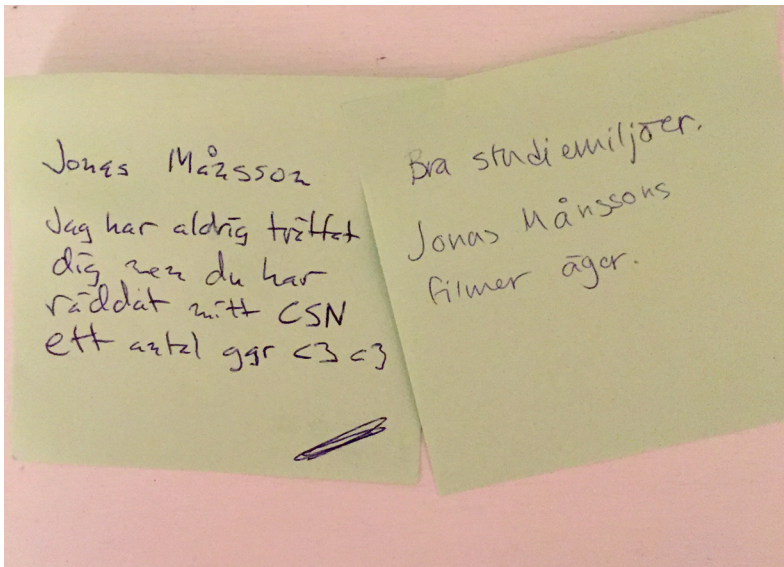 Jonas Månsson
Jag har aldrig träffat
dig men du har
räddat mitt CSN
ett antal ggr <3 <3
Bra studiemiljöer.
Jonas Månssons
filmer äger.